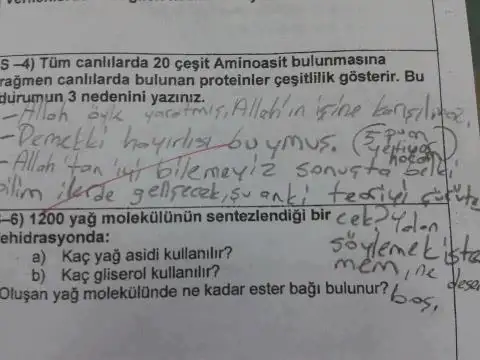 S –4) Tüm canlılarda 20 çeşit Aminoasit bulunmasına
rağmen canlılarda bulunan proteinler çeşitlilik gösterir. Bu
durumun 3 nedenini yazınız.
– Allah öyle yaratmış, Allah'ın işine karışılmaz.
– Demekki hayırlısı buymuş. (5 puan yetiyor hocam)
– Allah'tan iyi bilemeyiz sonuçta belki
bilim ilerde gelişecek, şu anki teoriyi çürüte
cek? Yalan
söylemek iste
mem, ne desem
boş.
–6) 1200 yağ molekülünün sentezlendiği bir
ehidrasyonda:
a) Kaç yağ asidi kullanılır?
b) Kaç gliserol kullanılır?
Oluşan yağ molekülünde ne kadar ester bağı bulunur?